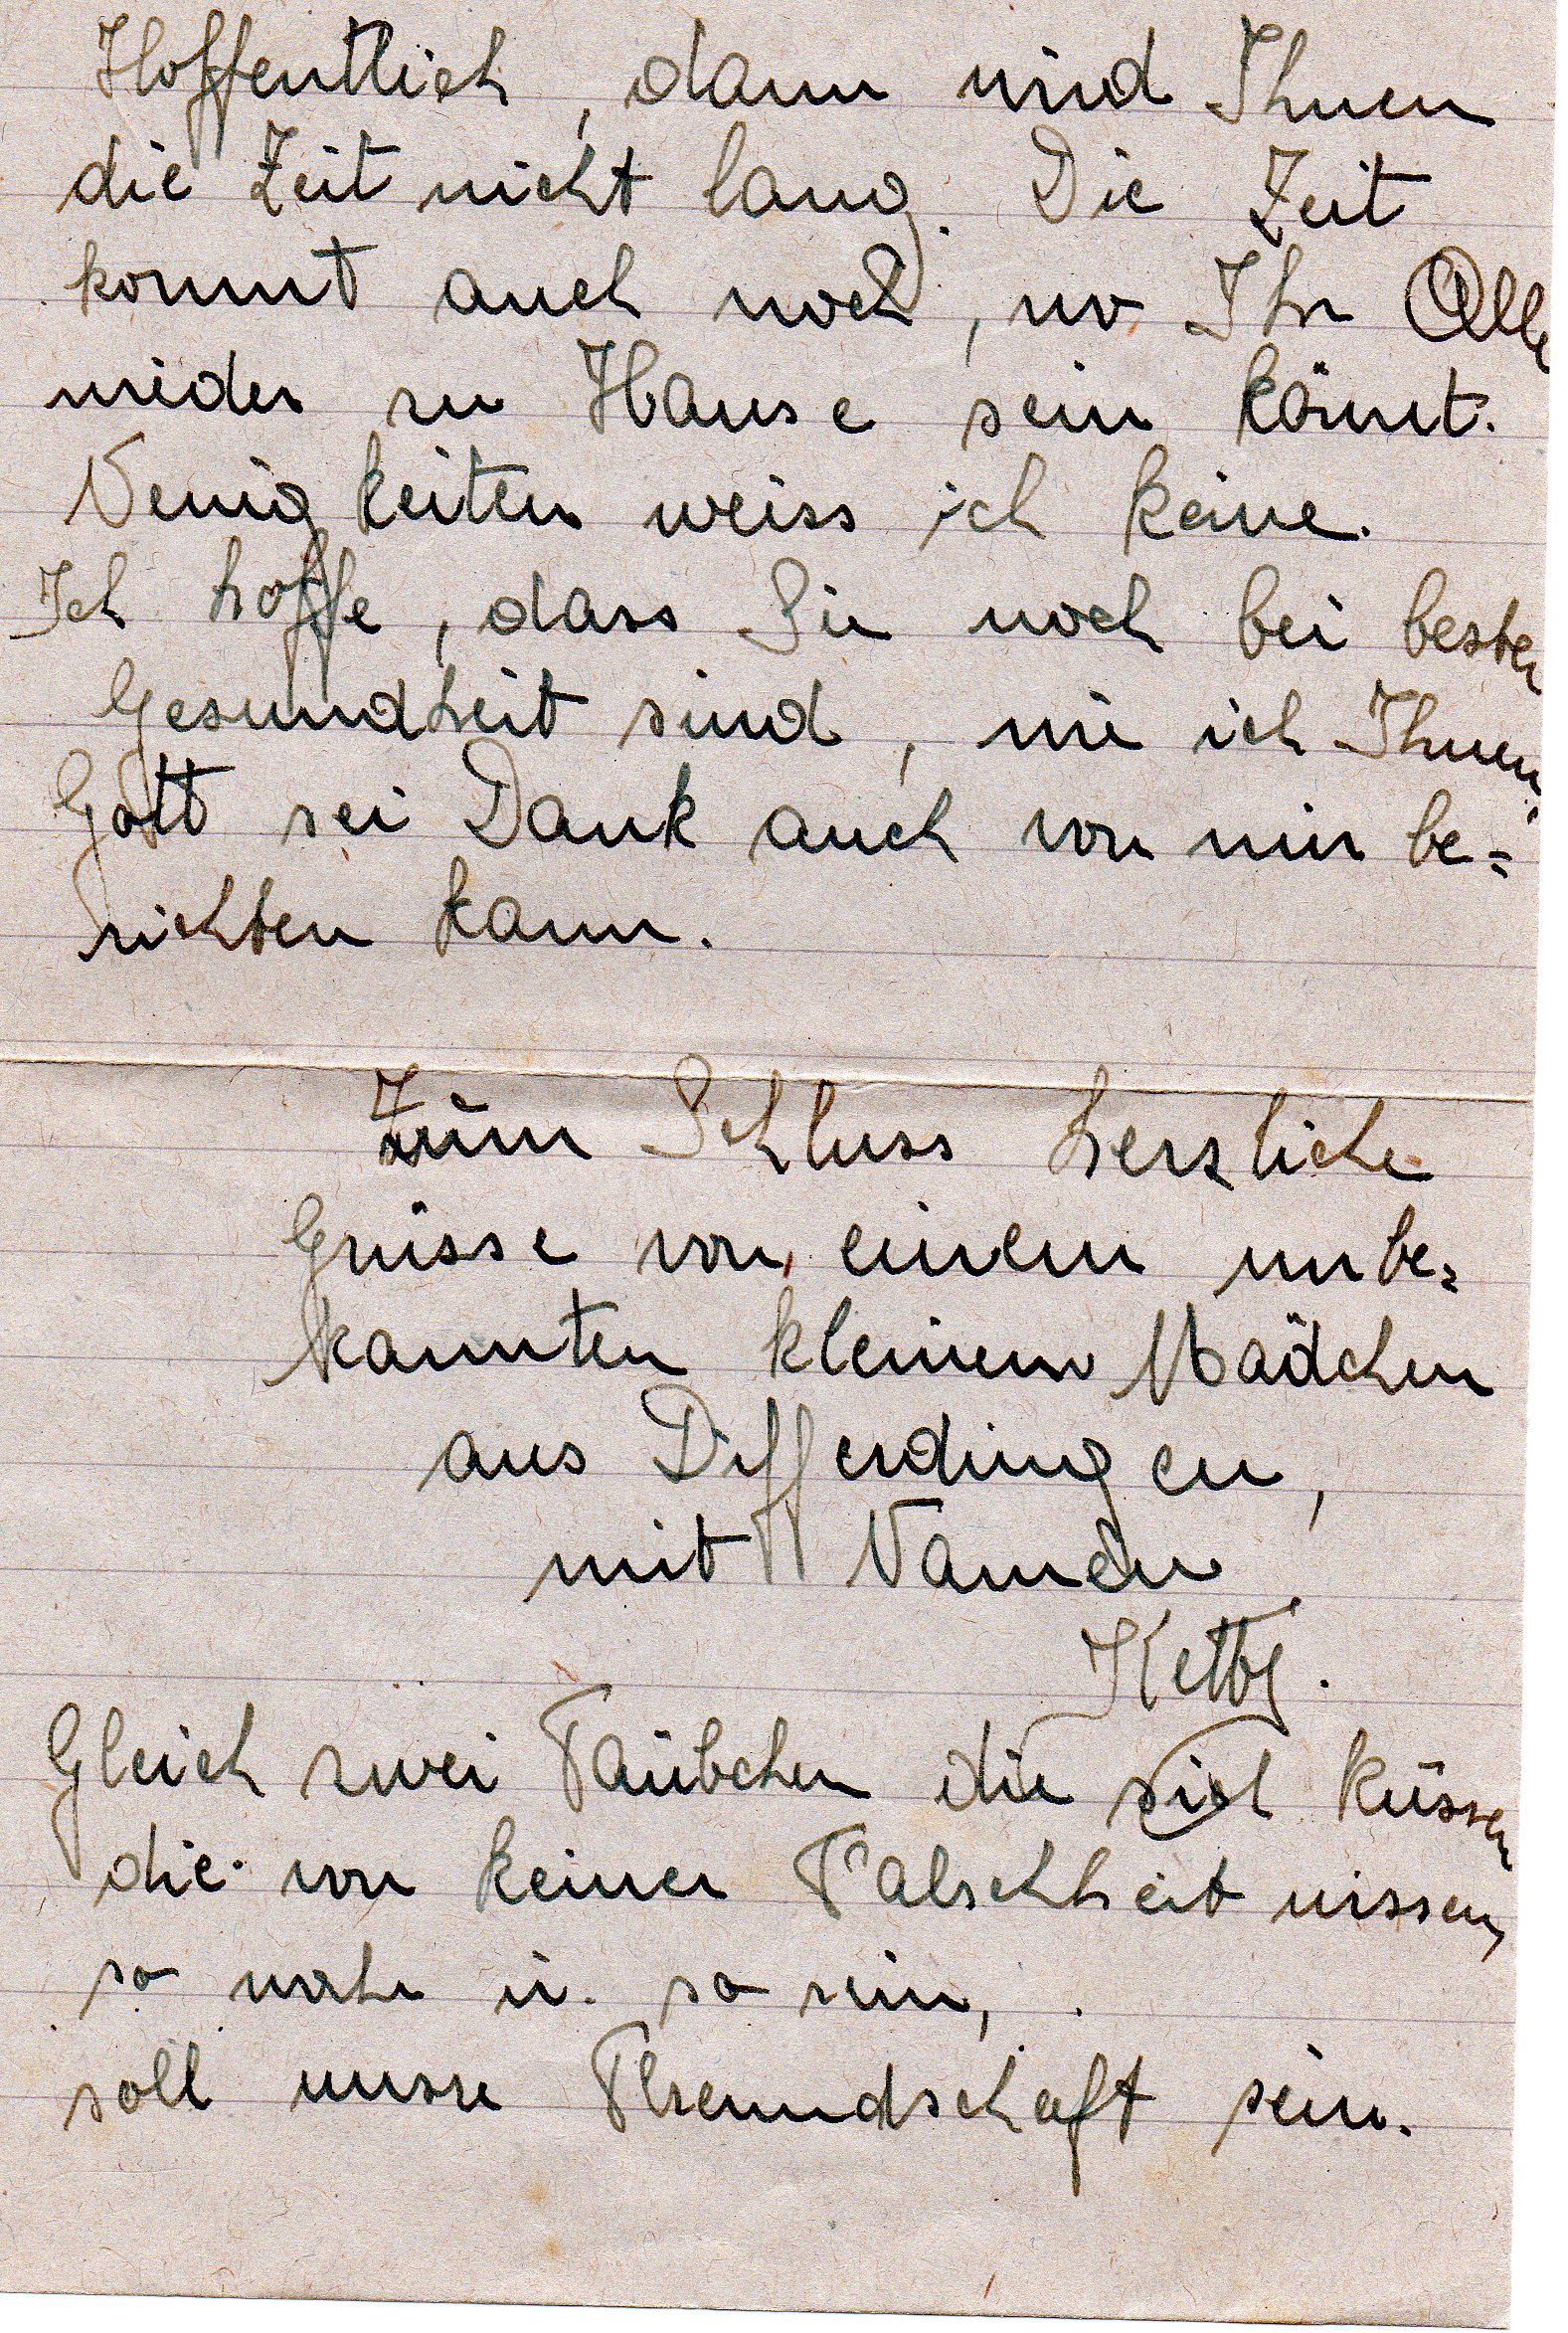 Hoffentlich, dann wird Ihnen
die Zeit nicht lang. Die Zeit
kommt auch noch, wo Ihr Alle
wieder zu Hause sein könnt.
Neuigkeiten weiss ich keine.
Ich hoffe, dass Sie noch bei bester
Gesundheit sind, wie ich Ihnen
Gott sei Dank auch von mir be=
richten kann.
Zum Schluss herzliche
Grüsse von einem unbe=
kannten kleinem Mädchen
aus Differdingen,
mit Namen
Ketty.
Gleich zwei Täubchen die sich küssen
die von keiner Falschheit wissen,
so wahr u. so rein,
soll unsre Freundschaft sein.